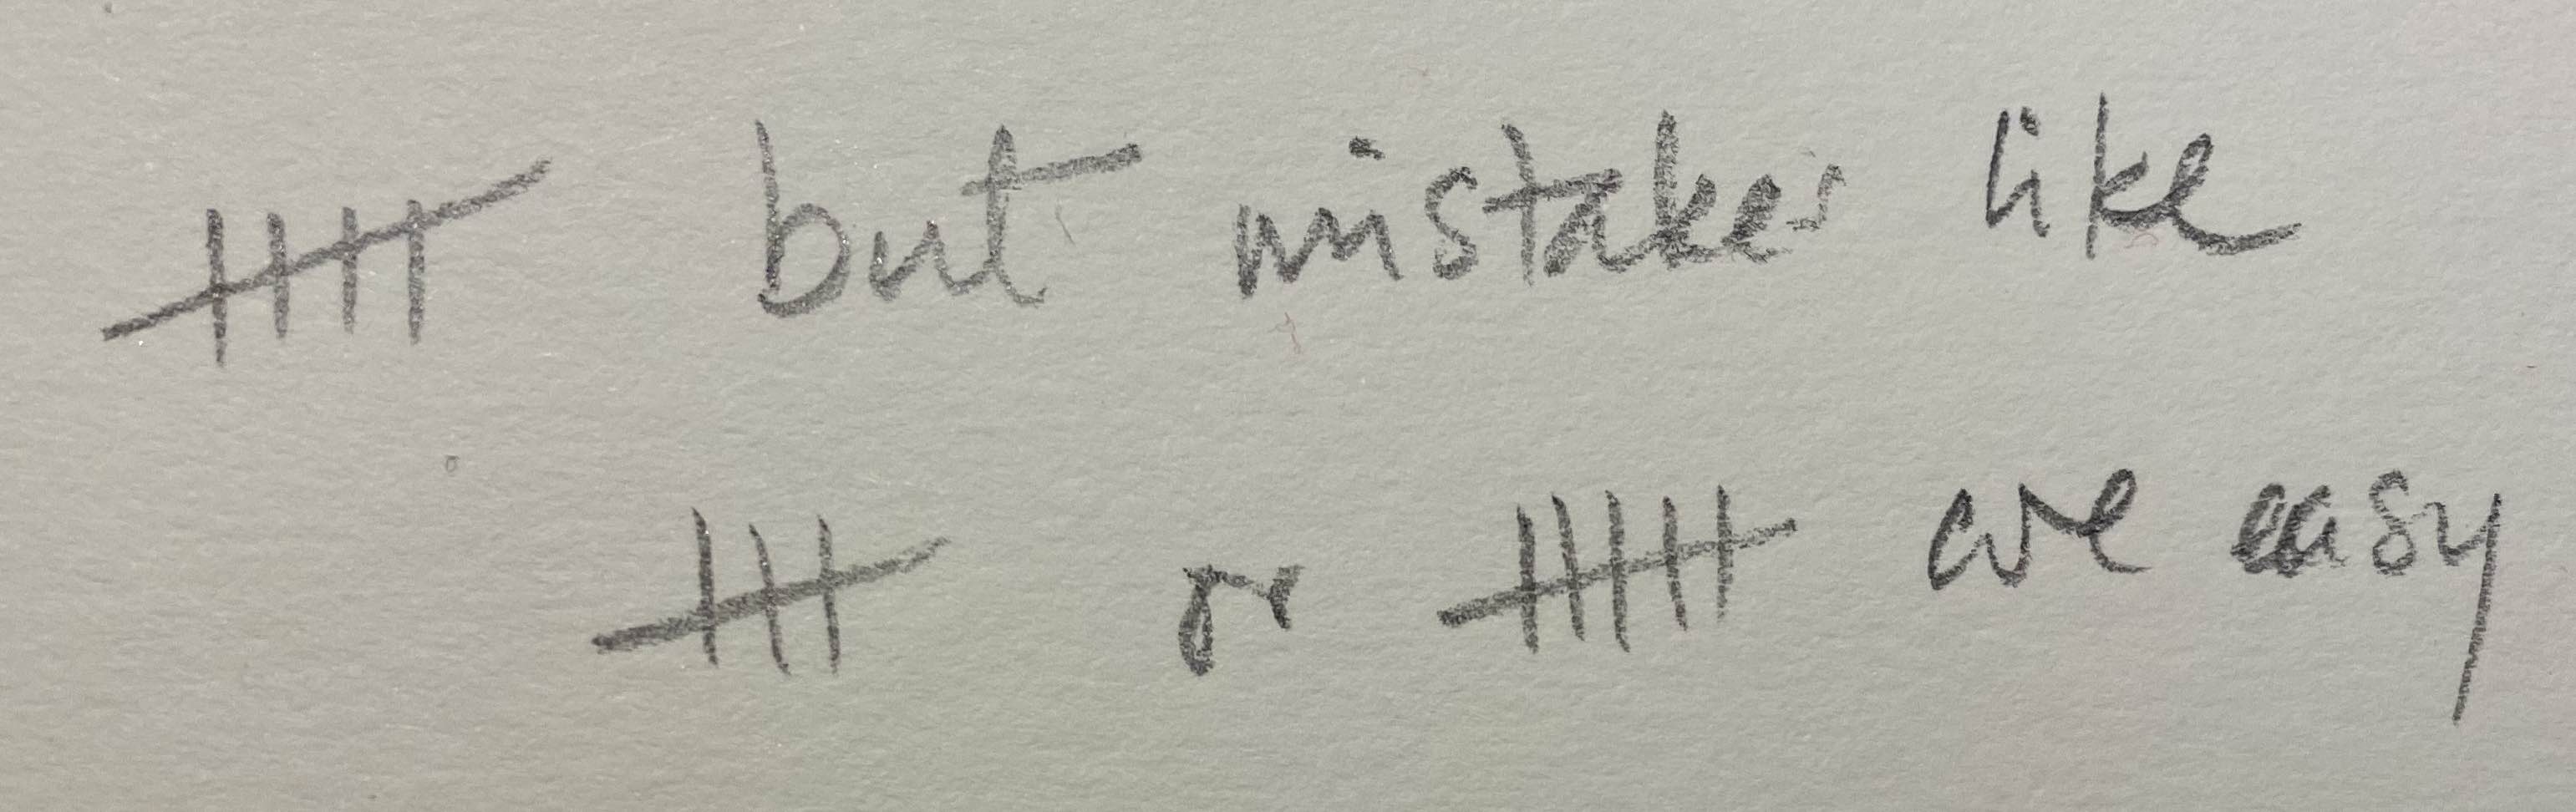 卌 but mistakes like
or are easy